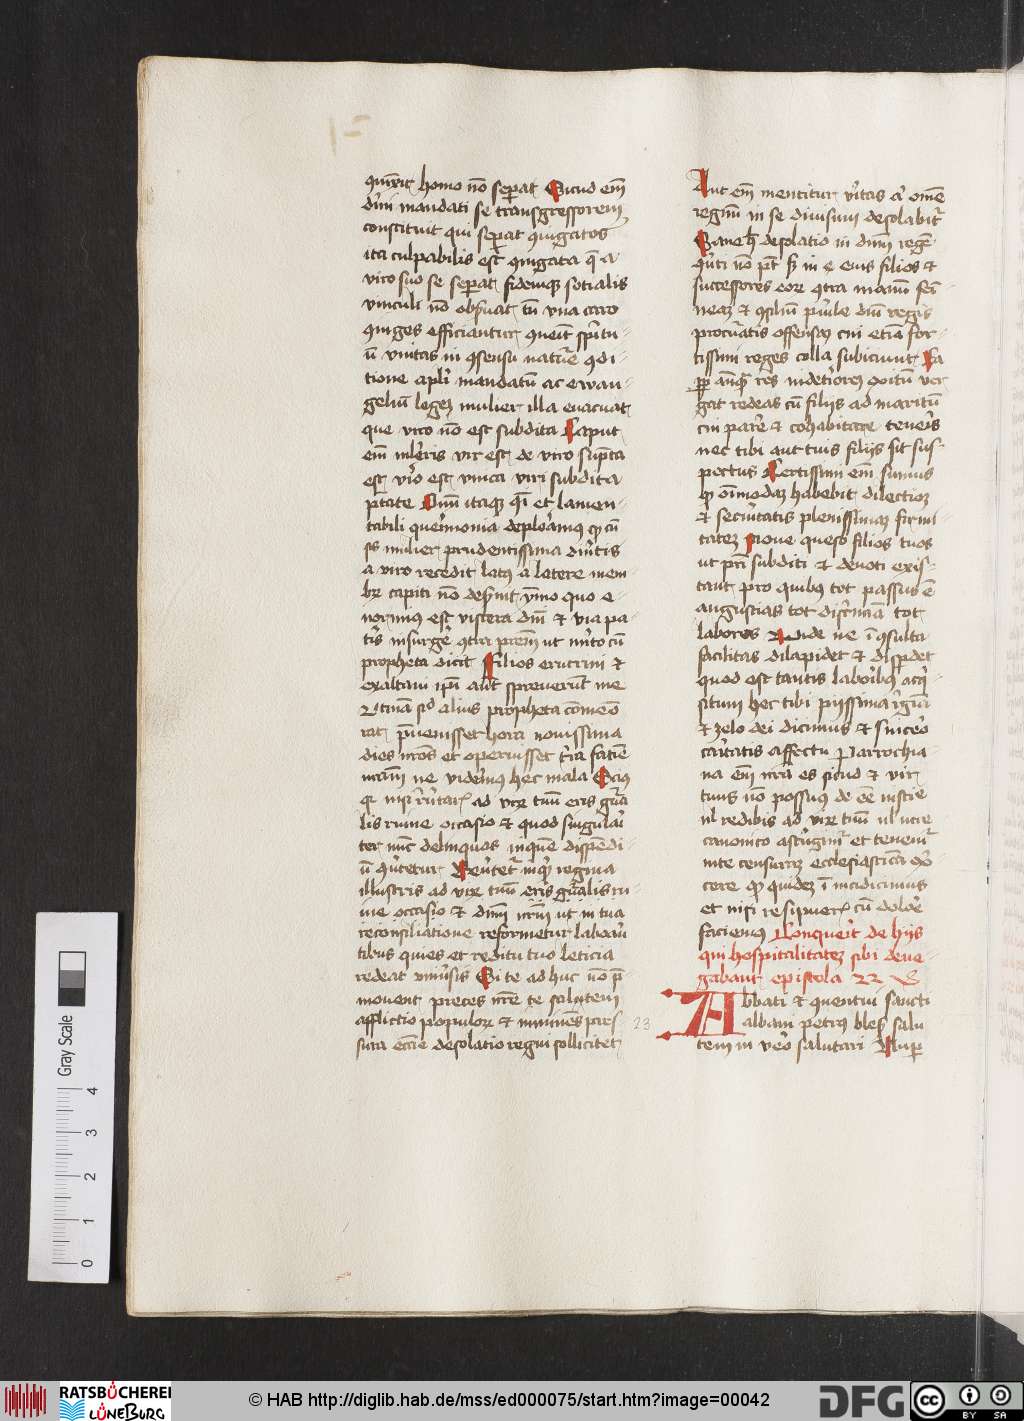 quiverit homo nō separat Sicud em̄
dn̄i mandati se transgressorem
constituit qui separat 9iugatos
ita culpabilis est 9iugata q̄ a
viro suo se separat fidemq3 socialis
vinculi nō obs̄uat tn̄ vna caro
9iuges efficiantur
vnitas in 9sensu
tione apl'i mandatū ac ewan-
geliū leges mulier illa euacuat
que viro nō est subdita Caput
em̄ ml'ieris vir est de viro sūpta
est viro est vnica viri subdita
p̄tate Cum itaq3 et lamen-
tabili querimonia deploramus q̄ cū
sis mulier prudentissima
a viro recedit latus a latere mem
br̄ capiti nō des̄uit ymo quo e-
normius est viscera dn̄i & via pa-
tris insurgere 9tra prēm ut mīto cū
propheta dicit Filios enutriui &
exaltaui ip̄i aut̄ spreuerūt me
Vtinā sic̄ alius propheta cōmemo
rat p̄uenisset hora nouissima
dies nrōs et operuisset tr̄ra faciē
nrām ne videremus hec mala
q̄ nisi ad vir3 tuū eris gn̄a
lis ruine occasio & quod singulari
ter nūc delinquos inquē dispendi-
ū Reuertere itaq3 regina
illustris ad vir3 tuū eris gn̄alis ru-
ine occasio & dnm̄ nrm̄ ut in tua
reconsiliatione reformetur laborā
tibus quies et reditu tuo leticia
redeat vniūsis Si te ad huc nō p̄
mouent preces nrē te saltem
afflictio populor3 & iminens pres
sura ecc̄ie desolatio regni sollicitet
23
Aut em̄ mentitur v̄itas a' omē
regnū in se diuisum desolabit'
Sane h̄ desolatio in dnm̄ regē
nō pt̄ s3 in eius filios &
successores eor3 9tra manū femi-
neā & 9siliū puerile dn̄m regis
procuratis offensā cui etiā for-
tissimi reges colla subiciunt Ea
pp̄ anq̄ res in deteriorem exitū ver
gat redeas cū filijs ad maritū
cui parere & cohabitare teneris
nec tibi aut tuis filijs sit sus-
pectus Certissimi em̄ sumus
q̄ oīmodam habebit dilectionē
& securitatis plenissimam firmi
tatem Mone queso filios tuos
ut pr̄i subditi & deuoti exis-
tant pro quibus tot passus ē
angustias tot discrimina tot
labores Vide ne ī9sulta
facilitas dilapidet & disperdet
quod est tantis laboribus acq̄-
situm hec tibi piissima regina
& zelo dei dicimus & sincero
caritatis affectu Parrochia-
na em̄ nrā es sicud & vir
tuus nō possumus de ee iusticie
ul' redibis ad vir3 tuū ul' iure
canonico astringimur et tenemur
in te censurā ecclesiasticā exer-
cere q̄ quidem inuiti dicimus
et nisi resipueris cū dolore
faciemus Conquerit de hijs
qui hospitalitatem sibi dene-
gabant epistola
Abbati & conuentui sancti
albani petrus bles̄ salu
tem in vero salutari Nuper
Gray Scale
0 1 2 3 4
RATSBÜCHEREI
LÜNEBURG
© HAB http://diglib.hab.de/mss/ed000075/start.htm?image=00042
DFG
CC BY SA